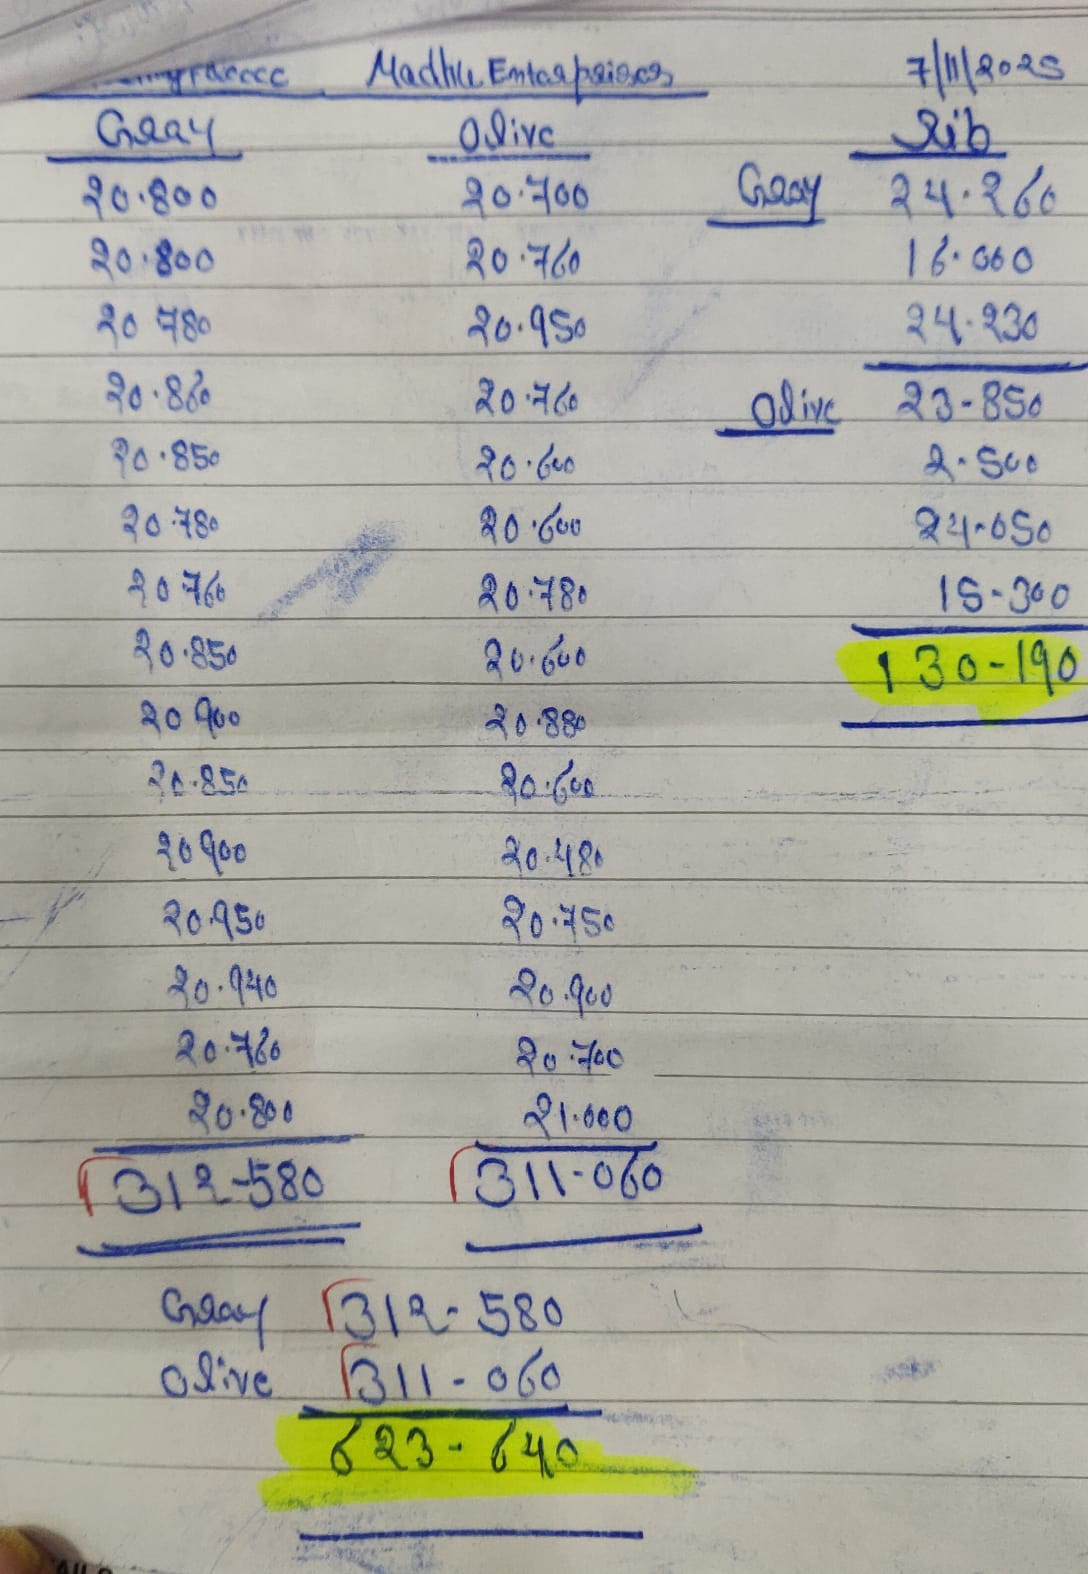 Madhu Enterprises 7/11/2025
Gray Olive Rib
20.800 20.700 Gray 24.260
20.800 20.760 16.000
20 780 20.950 24.230
20.860 20.760 Olive 23-850
20.850 20.600 2.500
20.780 20.600 24-050
20 760 20.780 15-300
20.850 20.600 130-190
20 900 20.880
20.850 20.600
20 900 20.480
20.950 20.750
20.940 20.900
20.760 20.700
20.800 21.000
312-580 311-060
Gray 312-580
Olive 311-060
623-640